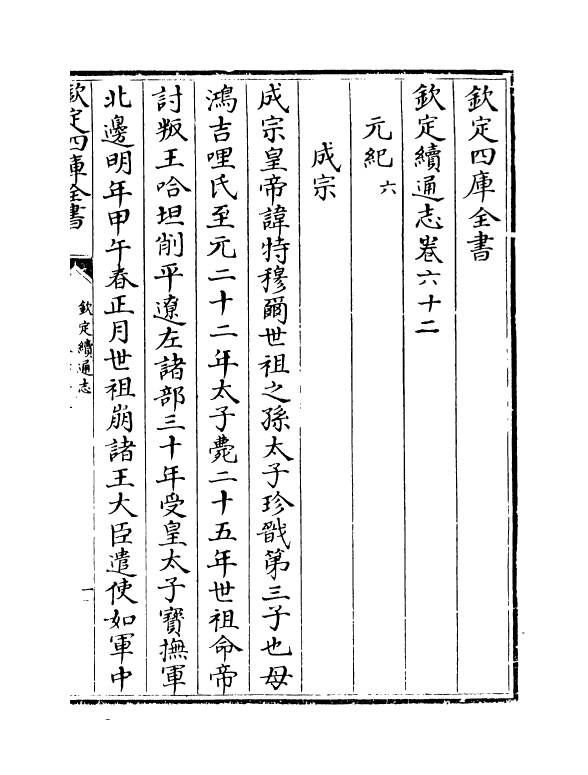 欽定四庫全書
欽定續通志卷六十二
元紀六
成宗
成宗皇帝諱特穆爾世祖之孫太子珍戩第三子也母
鴻吉哩氏至元二十二年太子薨二十五年世祖命帝
討叛王哈坦削平遼左諸部三十年受皇太子寶撫軍
北邊明年甲午春正月世祖崩諸王大臣遣使如軍中
欽定四庫全書
欽定續通志